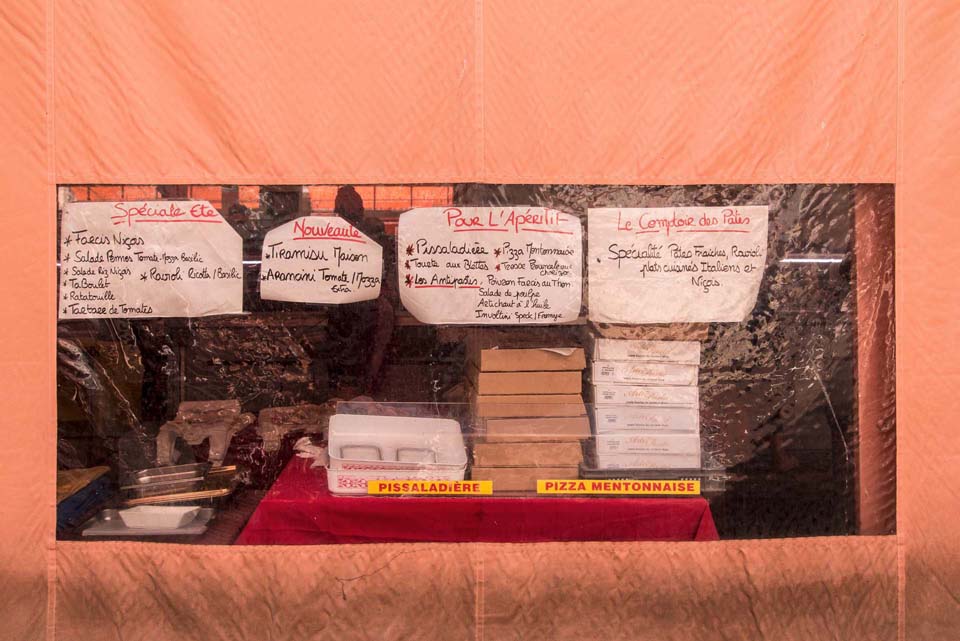 Spéciale Ete
* Farcis Niçois
* Salade Pomes Tomate Mozza Basilic
* Salade Riz Niçois
* Ravioli Ricotta/Basilic
* Taboulet
* Ratatouille
* Tartare de Tomates
Nouveauté
Tiramisu Maison
Arancini Tomate/Mozza
Pour L'Apéritif
* Pissaladière
* Pizza Mentonnaise
* Tourte aux Blettes
* Los Antipastis, Poivron Farcis au Thon
Salade de poulpe
Artichaut à l'huile
Involtini Speck/Fromage
Le Comptoir des Pâtes
* Spécialité Pâtes Fraîches, Ravioli,
plats cuisinés Italiens et
Niçois.
PISSALADIÈRE
PIZZA MENTONNAISE